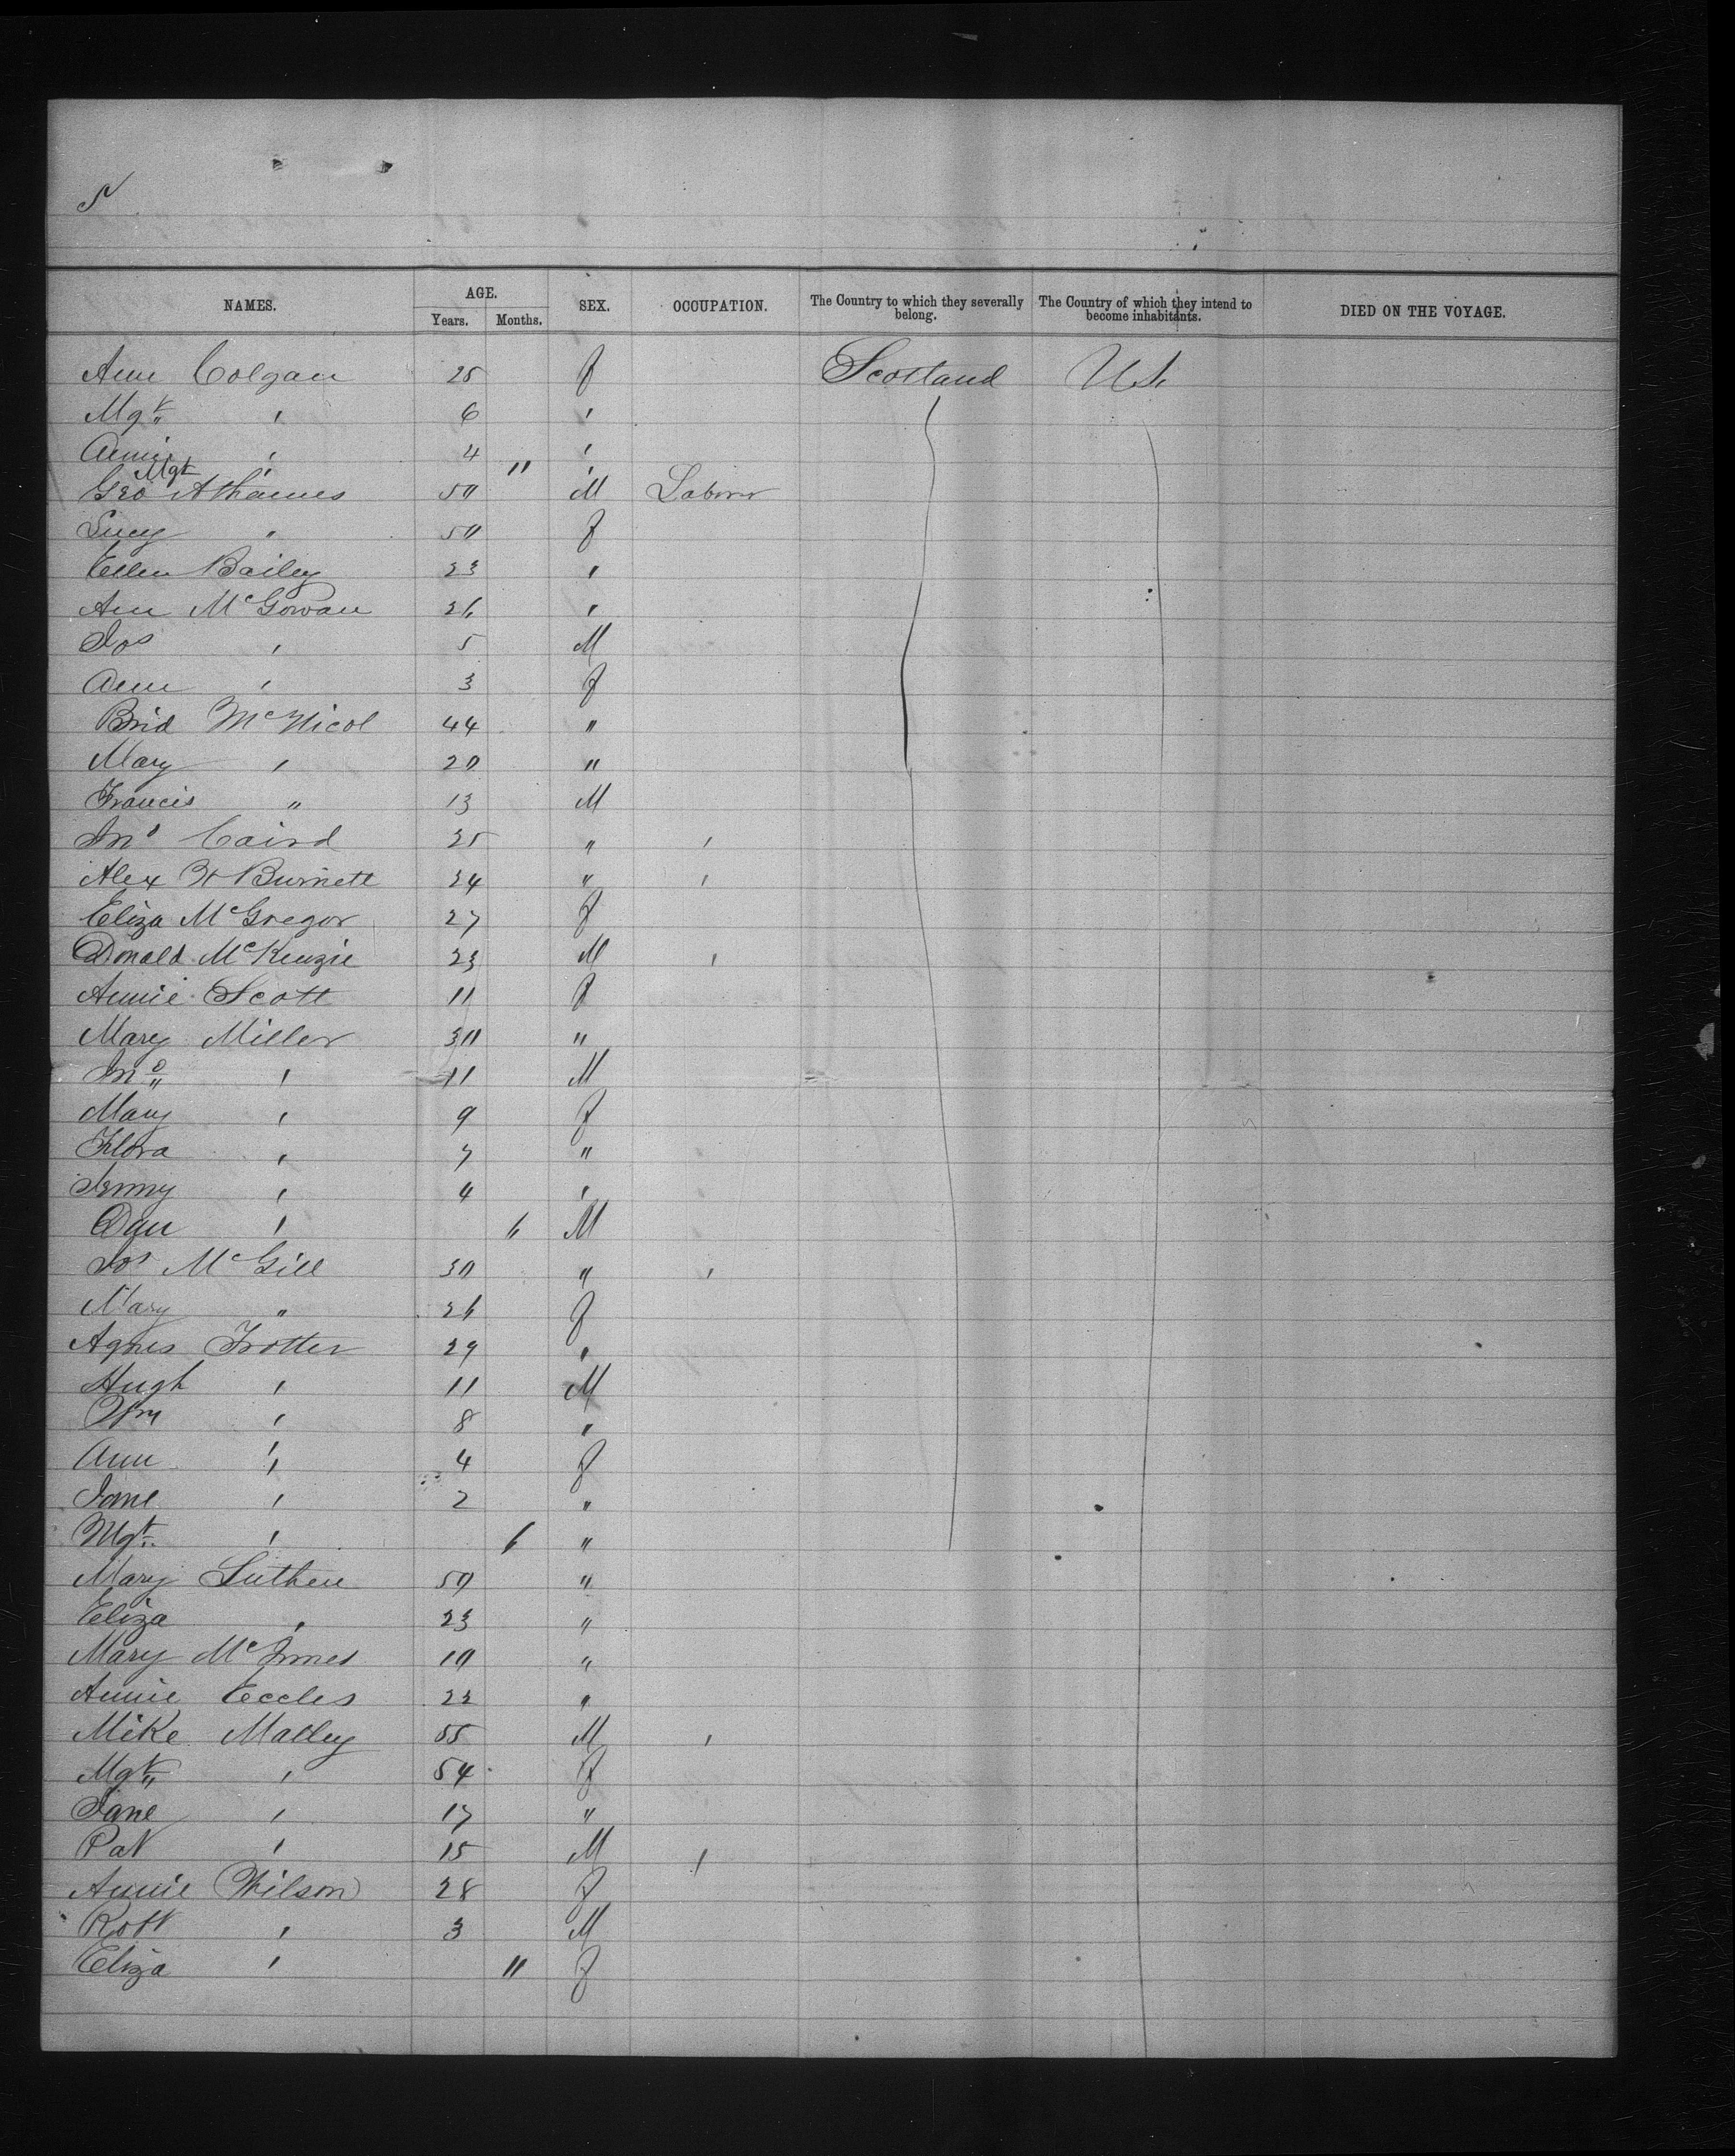 5
NAMES. AGE. SEX. OCCUPATION. The Country to which they severally belong. The Country of which they intend to become inhabitants. DIED ON THE VOYAGE.
Years. Months.
Ann Colgan 25 f Scotland US
Mgt " 6 "
Annie " 4 "
Mgt " 11 "
Geo 50 M Laborer
Lucy " 50 f
Ellen Bailey 23 "
Ann McGowan 26 "
Jos " 5 M
Ann " 3 f
Brid McNicol 44 "
Mary " 20 "
Francis " 13 M
Jno Caird 25 " "
Alex W Burnett 24 " "
Eliza McGregor 27 f
Donald McKenzie 23 M "
Annie Scott 11 f
Mary Miller 30 "
Jno " 11 M
Mary " 9 f
Flora " 7 "
Jenny " 4 "
Dan " 6 M
Jos McGill 30 " "
Mary " 26 f
Agnes Trotter 29 "
Hugh " 11 M
Wm " 8 "
Ann " 4 f
Jane " 2 "
Mgt " 6 "
Mary 50 "
Eliza " 23 "
Mary McInnes 19 "
Annie Eccles 22 "
Mike Malley 55 M "
Mgt " 54 f
Jane " 17 "
Pat " 15 M "
Annie Wilson 28 f
Robt " 3 M
Eliza " 11 f